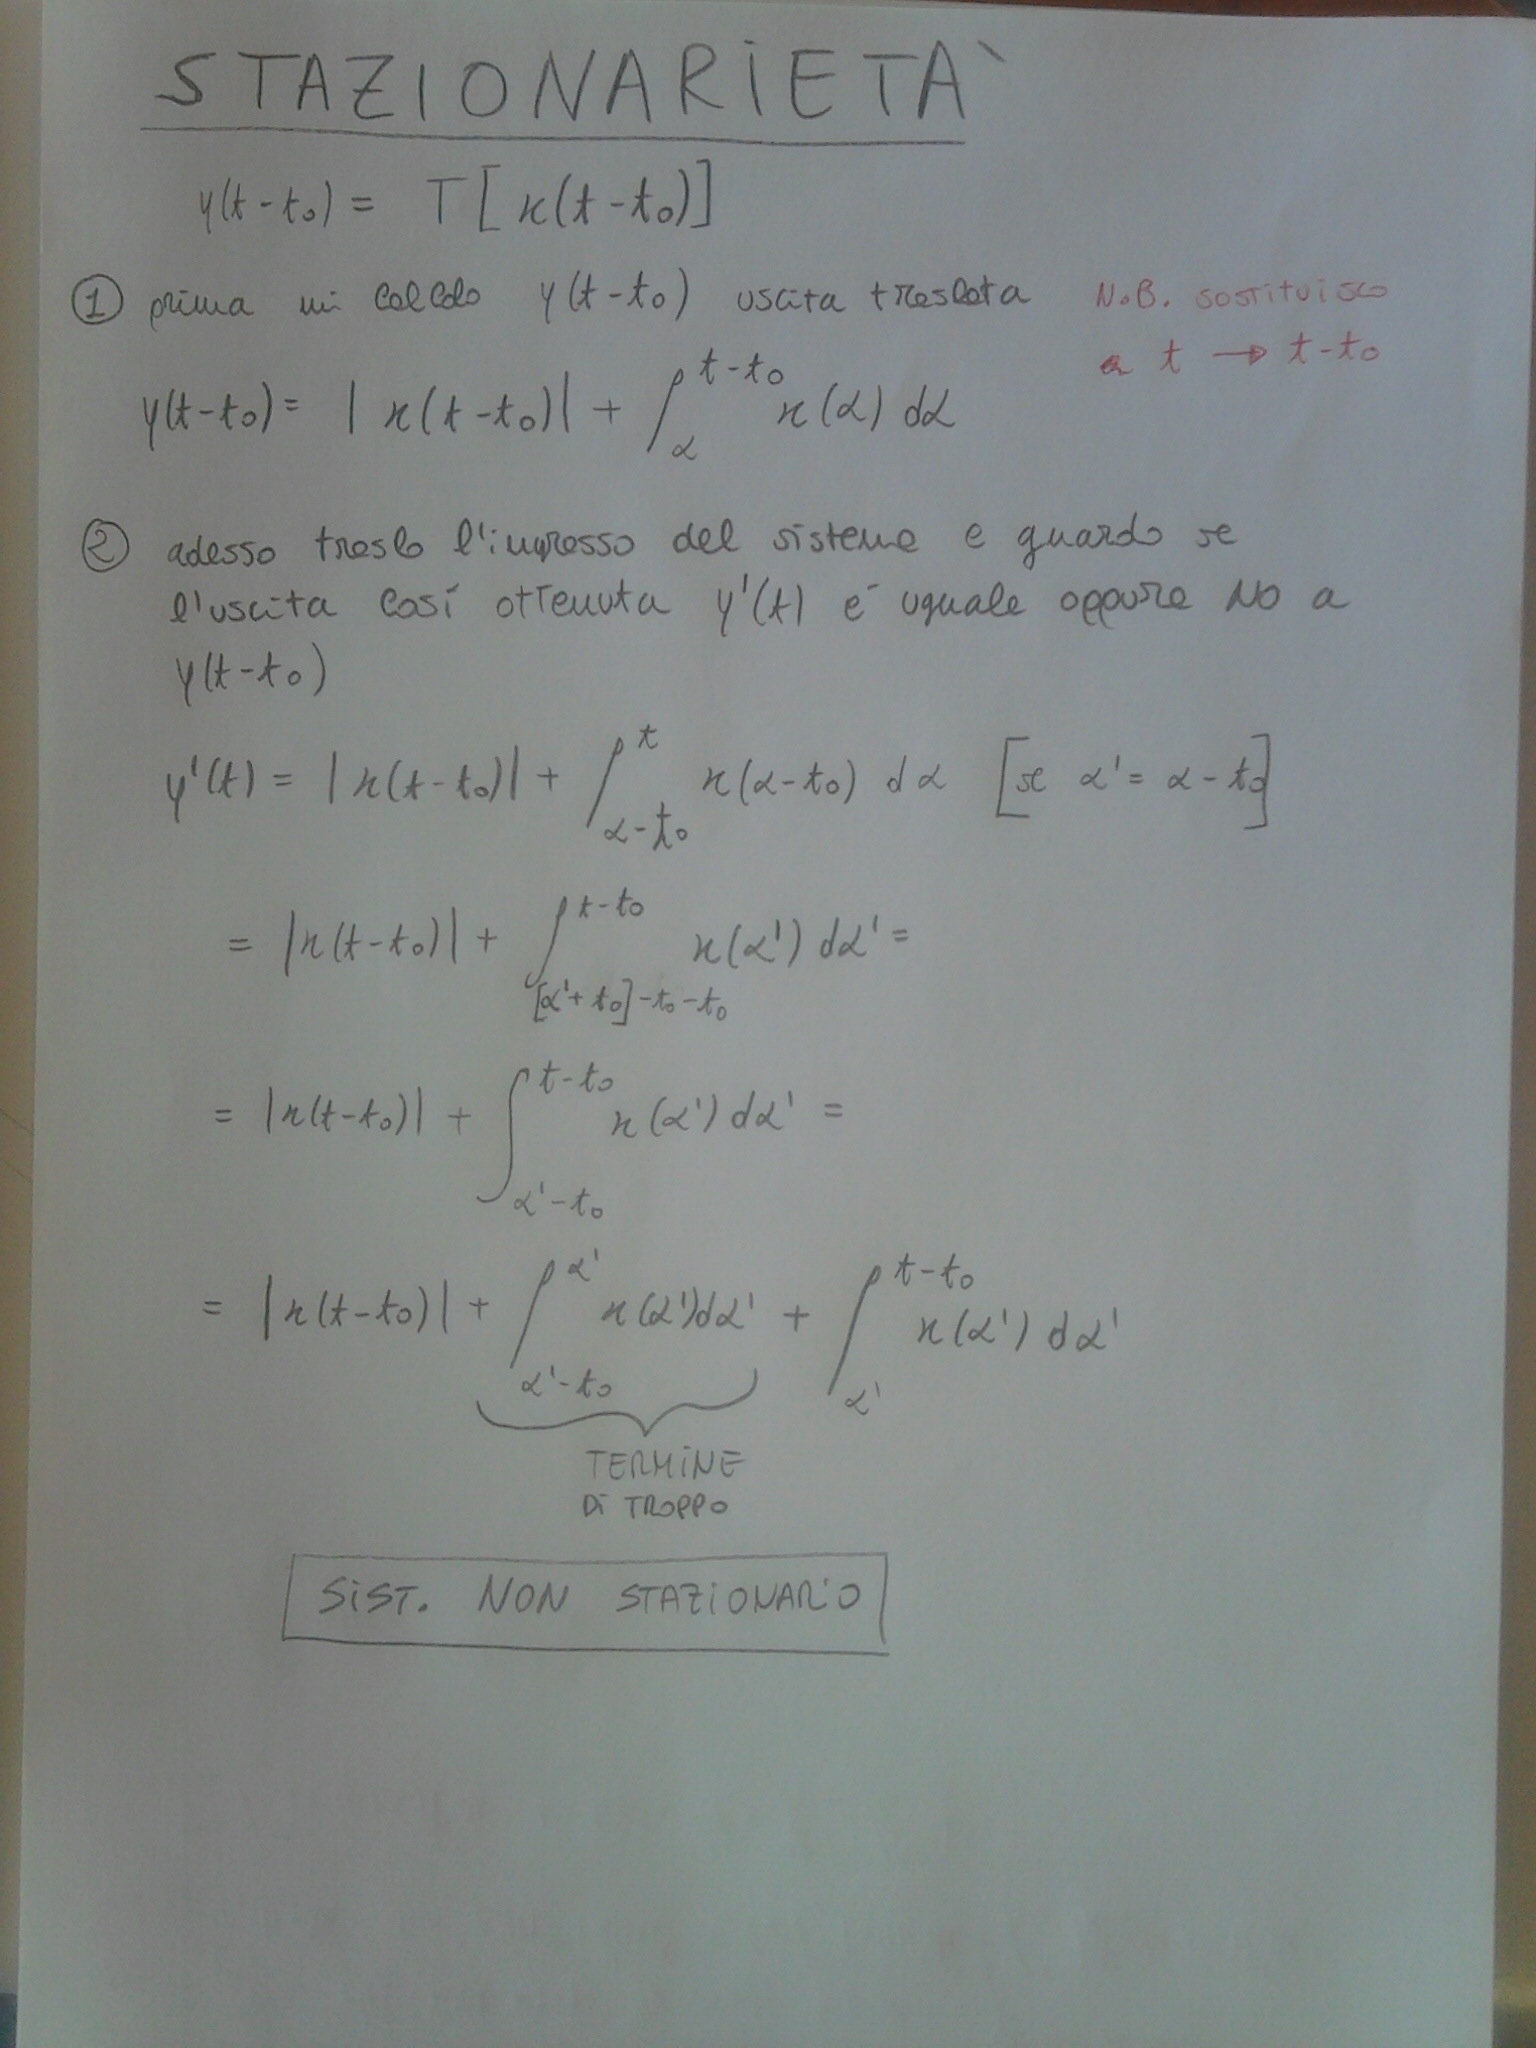 STAZIONARIETA`
y(t-t₀) = T[x(t-t₀)]
① prima mi calcolo y(t-t₀) uscita traslata N.B. sostituisco
a t → t-t₀
y(t-t₀) = |x(t-t₀)| + ∫_α^{t-t₀} x(α) dα
② adesso traslo l'ingresso del sistema e guardo se
l'uscita così ottenuta y'(t) è uguale oppure NO a
y(t-t₀)
y'(t) = |x(t-t₀)| + ∫_{α-t₀}^t x(α-t₀) dα [se α' = α-t₀]
= |x(t-t₀)| + ∫_{[α'+t₀]-t₀-t₀}^{t-t₀} x(α') dα' =
= |x(t-t₀)| + ∫_{α'-t₀}^{t-t₀} x(α') dα' =
= |x(t-t₀)| + ∫_{α'-t₀}^{α'} x(α')dα' + ∫_{α'}^{t-t₀} x(α') dα'
TERMINE
Di TROPPO
SiST. NON STAZIONARIO